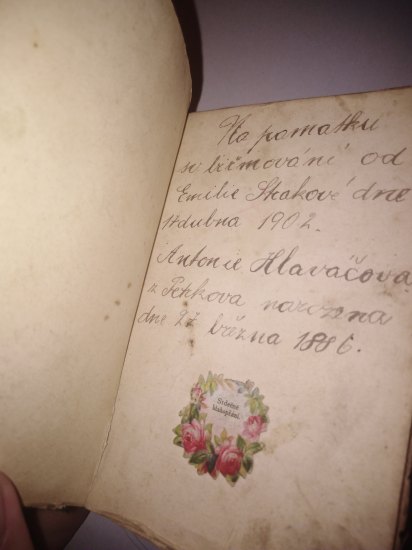 Na pamatku
sv biřmování od
Emilie Strakové dne
dubna 1902.
Antonie Hlavačova
z Petrkova narozena
dne 27 března 1886.
Srdečné
blahopřání